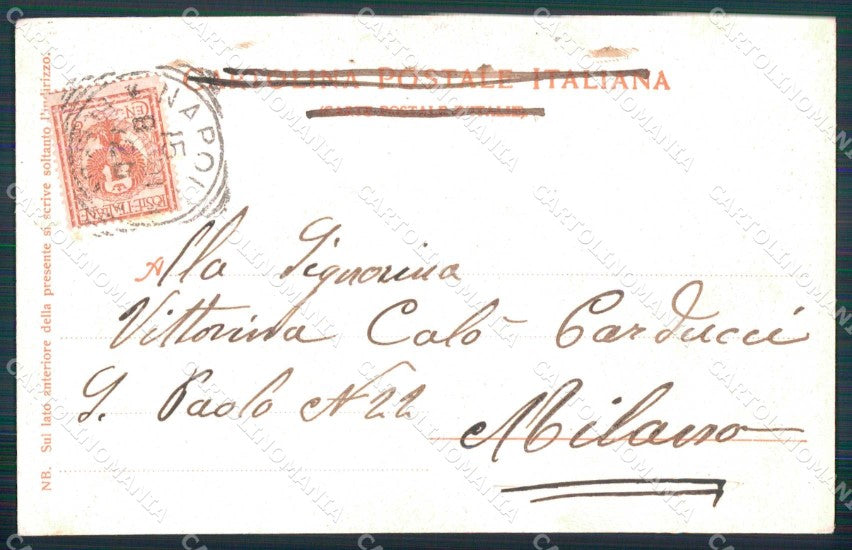 CARTOLINA POSTALE ITALIANA
(CARTE POSTALE ITALIENNE)
NAPOLI
15
8
POSTE ITALIANE
Alla Signorina
Vittorina Calò Carducci
S. Paolo N 22
Milano
NB. Sul lato anteriore della presente si scrive soltanto l'indirizzo.
CARTOLINOMANIA